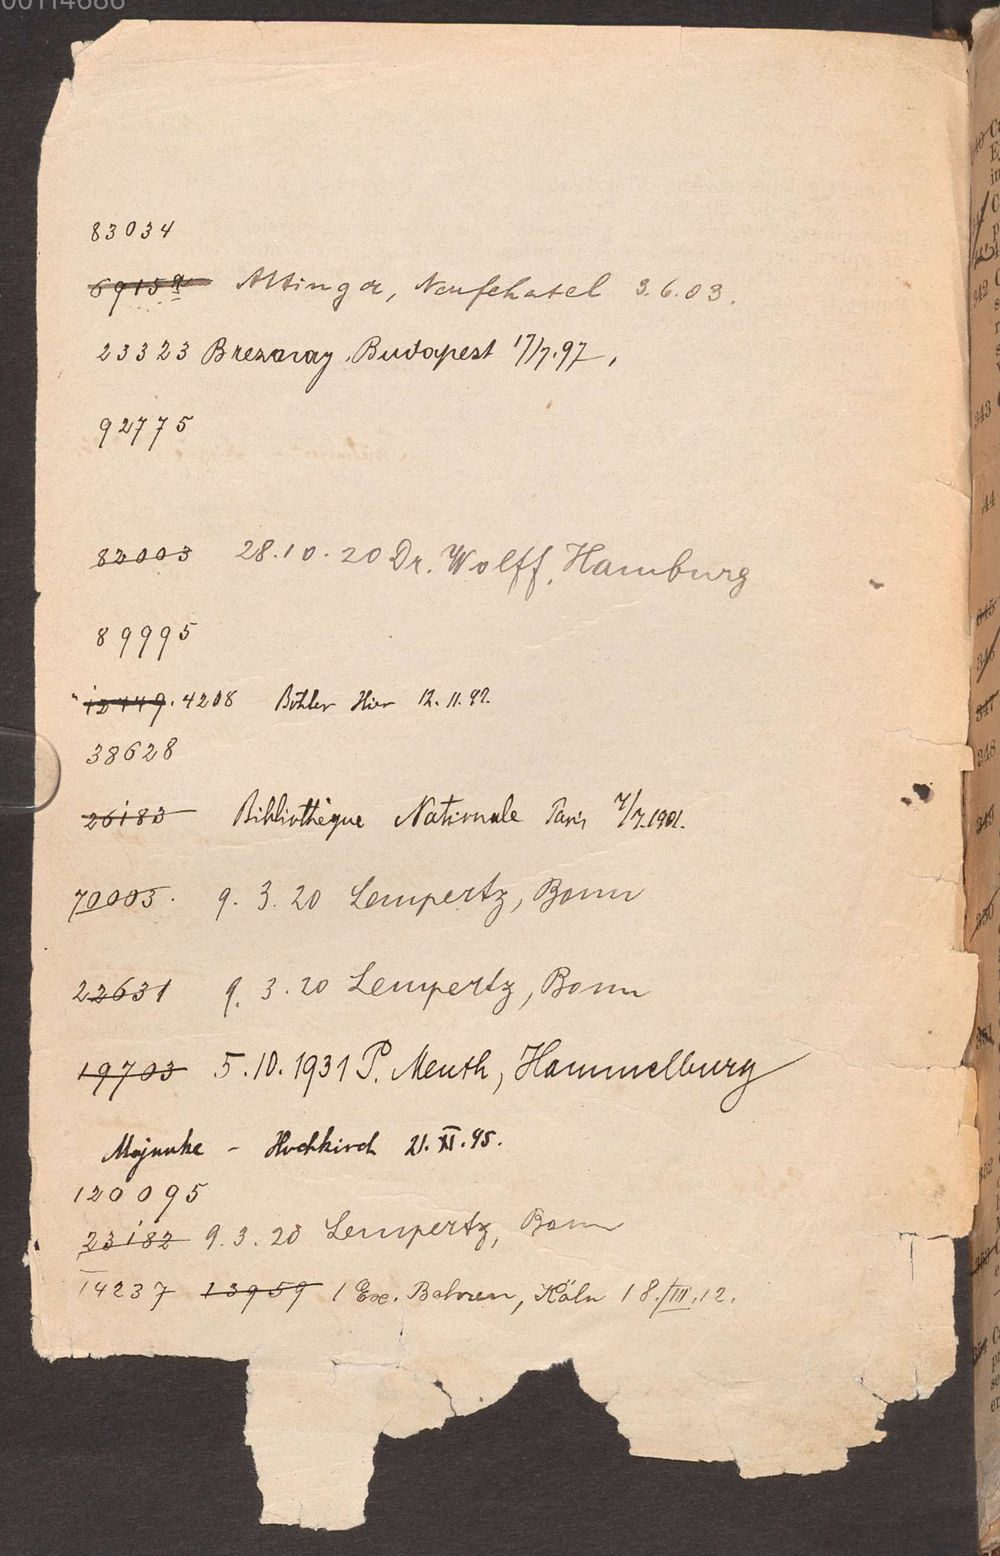 00114686
83034
69152 Attinger, Neufchatel 3.6.03.
23323 Budapest 17/7.97,
92775
82003 28.10.20 Dr. Wolff, Hamburg
89995
12449. 4208 Böhler Hier 12.11.92.
38628
26183 Bibliothèque Nationale Paris 4/7.1901.
70005. 9.3.20 Lempertz, Bonn
22631 9.3.20 Lempertz, Bonn
19703 5.10.1931 P. Menth, Hammelburg
Majunke - Hochkirch 21.XI.95.
120095
23182 9.3.20 Lempertz, Bonn
14237 13959 1 Ex. Bahren, Köln 18./III.12.
342
343
44
345
346
347
348
349
350
351
352
354